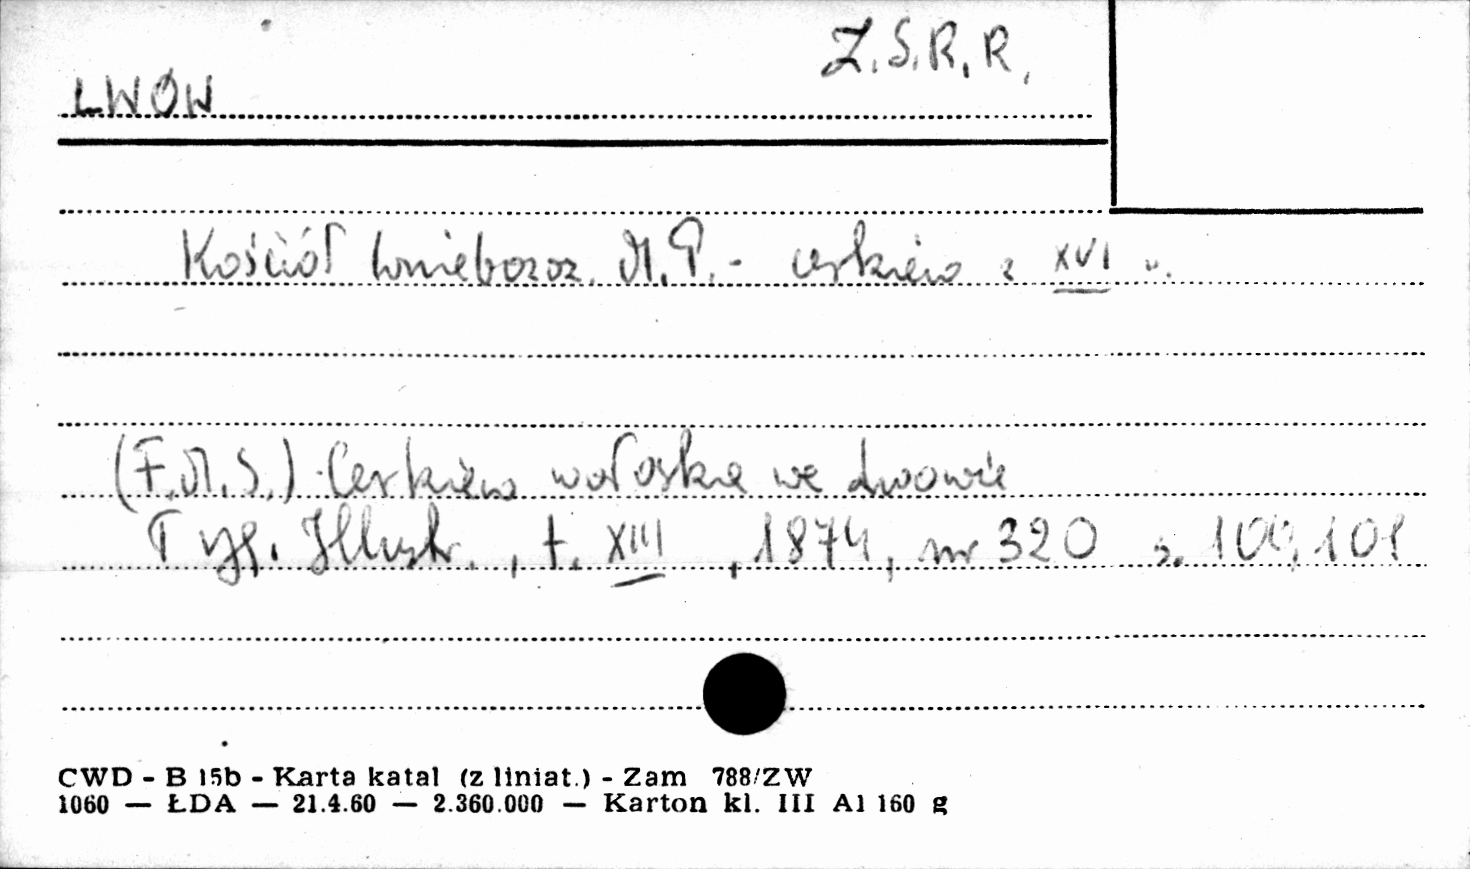 Z.S.R.R.
LWÓW
Kościół Wniebowz. M.P. - cerkiew z XVI w.
(F.M.S.) Cerkiew wołoska we Lwowie
Tyg. Illustr., t. XIII, 1874, nr 320 s. 100, 101
CWD - B 15b - Karta katal (z liniat.) - Zam 788/ZW
1060 — ŁDA — 21.4.60 — 2.360.000 — Karton kl. III A1 160 g